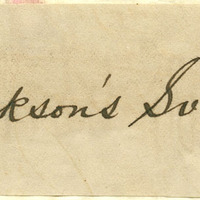 kson's Sv